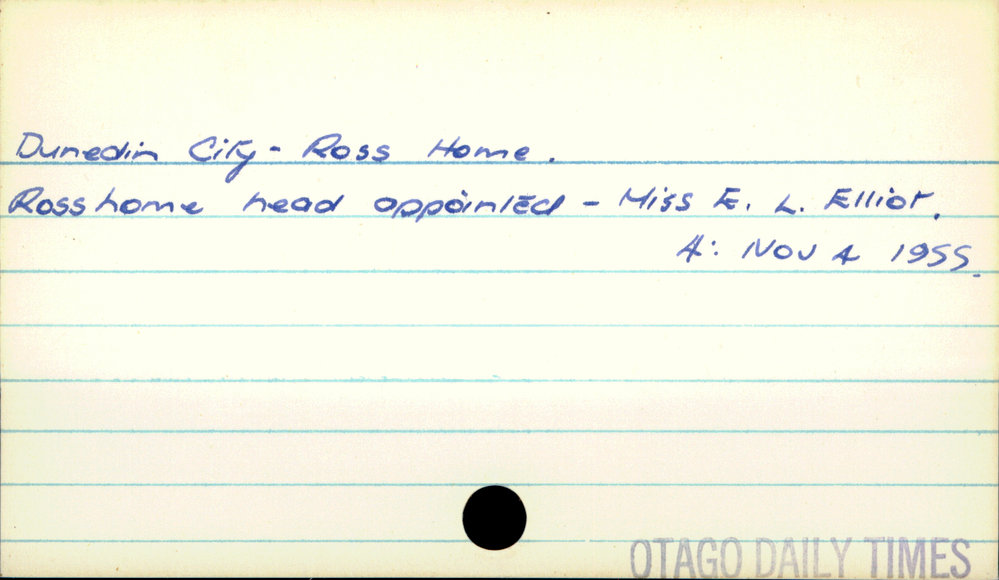 Dunedin City - Ross Home.
Ross home head appointed - Miss E. L. Elliot.
A: Nov 4 1955.
OTAGO DAILY TIMES